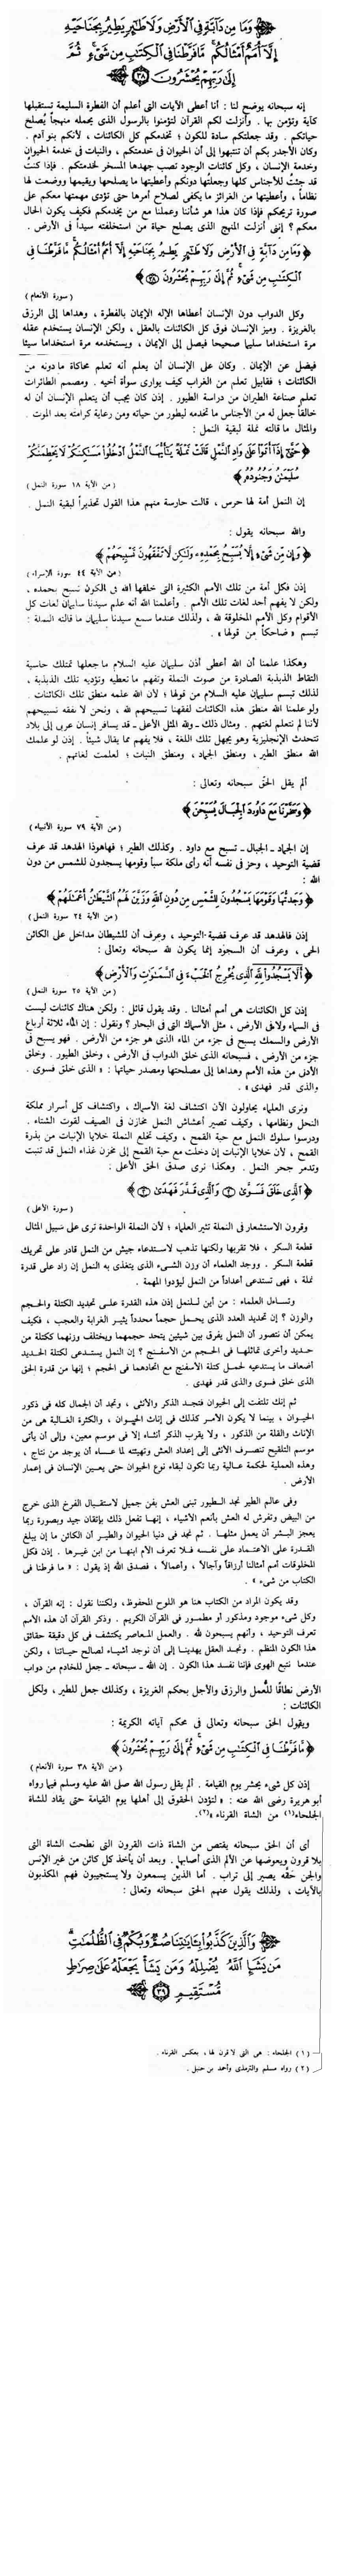 وَمَا مِن دَآبَّةٍ فِي ٱلْأَرْضِ وَلَا طَٰٓئِرٍ يَطِيرُ بِجَنَاحَيْهِ
إِلَّآ أُمَمٌ أَمْثَالُكُم ۚ مَّا فَرَّطْنَا فِي ٱلْكِتَٰبِ مِن شَىْءٍ ۚ ثُمَّ
إِلَىٰ رَبِّهِمْ يُحْشَرُونَ ٣٨
إنه سبحانه يوضح لنا : أنا أعطى الآيات التى أعلم أن الفطرة السليمة تستقبلها
كآية وتؤمن بها . وأنزلت لكم القرآن لتؤمنوا بالرسول الذى يحمله منهجاً يُصلح
حياتكم . وقد جعلتكم سادة للكون ؛ تخدمكم كل الكائنات ، لأنكم بنو آدم .
وكان الأجدر بكم أن تنتبهوا إلى أن الحيوان فى خدمتكم ، والنبات فى خدمة الحيوان
وخدمة الإنسان ، وكل كائنات الوجود تصب جهدها المسخر لخدمتكم . فإذا كنتُ
قد جئتُ للأجناس كلها وجعلتها دونكم وأعطيتها ما يصلحها ويقيمها ووضعت لها
نظاماً ، وأعطيتها من الغرائز ما يكفى لصلاح أمرها حتى تؤدى مهمتها معكم على
صورة تريحكم فإذا كان هذا هو شأننا وعملنا مع من يخدمكم فكيف يكون الحال
معكم ؟ إننى أنزلت المنهج الذى يصلح حياة من استخلفته سيداً فى الأرض .
﴿ وَمَا مِن دَآبَّةٍ فِي ٱلْأَرْضِ وَلَا طَٰٓئِرٍ يَطِيرُ بِجَنَاحَيْهِ إِلَّآ أُمَمٌ أَمْثَالُكُم ۚ مَّا فَرَّطْنَا فِي
ٱلْكِتَٰبِ مِن شَىْءٍ ۚ ثُمَّ إِلَىٰ رَبِّهِمْ يُحْشَرُونَ ٣٨ ﴾
( سورة الأنعام )
وكل الدواب دون الإنسان أعطاها الإله الإيمان بالفطرة ، وهداها إلى الرزق
بالغريزة . وميز الإنسان فوق كل الكائنات بالعقل ، ولكن الإنسان يستخدم عقله
مرة استخداما سليما صحيحا فيصل إلى الإيمان ، ويستخدمه مرة استخداما سيئا
فيضل عن الإيمان . وكان على الإنسان أن يعلم أنه تعلم محاكاة ما دونه من
الكائنات ؛ فقابيل تعلم من الغراب كيف يوارى سوأة أخيه . ومصمم الطائرات
تعلم صناعة الطيران من دراسة الطيور . إذن كان يجب أن يتعلم الإنسان أن له
خالقاً جعل له من الأجناس ما تخدمه ليطور من حياته ومن رعاية كرامته بعد الموت .
والمثال ما قالته نملة لبقية النمل :
﴿ حَتَّىٰٓ إِذَآ أَتَوْا۟ عَلَىٰ وَادِ ٱلنَّمْلِ قَالَتْ نَمْلَةٌ يَٰٓأَيُّهَا ٱلنَّمْلُ ٱدْخُلُوا۟ مَسَٰكِنَكُمْ لَا يَحْطِمَنَّكُمْ
سُلَيْمَٰنُ وَجُنُودُهُۥ ﴾
( من الآية ١٨ سورة النمل )
إن النمل أمة لها حرس ، قالت حارسة منهم هذا القول تحذيراً لبقية النمل .
والله سبحانه يقول :
﴿ وَإِن مِّن شَىْءٍ إِلَّا يُسَبِّحُ بِحَمْدِهِۦ وَلَٰكِن لَّا تَفْقَهُونَ تَسْبِيحَهُمْ ﴾
( من الآية ٤٤ سورة الإسراء )
إذن فكل أمة من تلك الأمم الكثيرة التى خلقها الله فى الكون تسبح بحمده ،
ولكن لا يفهم أحد لغات تلك الأمم . وأعلمنا الله أنه علم سيدنا سليمان لغات كل
الأقوام وكل الأمم المخلوقة لله ، ولذلك عندما سمع سيدنا سليمان ما قالته النملة :
تبسم « ضاحكاً من قولها » .
وهكذا علمنا أن الله أعطى أذن سليمان عليه السلام ما جعلها تمتلك حاسية
التقاط الذبذبة الصادرة من صوت النملة وتفهم ما تعطيه وتؤديه تلك الذبذبة ،
لذلك تبسم سليمان عليه السلام من قولها ؛ لأن الله علمه منطق تلك الكائنات .
ولو علمنا الله منطق هذه الكائنات لفقهنا تسبيحهم لله ، ونحن لا نفقه تسبيحهم
لأننا لم نتعلم لغتهم . ومثال ذلك - ولله المثل الأعلى - قد يسافر إنسان عربى إلى بلاد
تتحدث الإنجليزية وهو يجهل تلك اللغة ، فلا يفهم مما يقال شيئاً . إذن لو علمك
الله منطق الطير ، ومنطق الجماد ، ومنطق النبات ؛ لعلمت لغاتهم .
ألم يقل الحقّ سبحانه وتعالى :
﴿ وَسَخَّرْنَا مَعَ دَاوُۥدَ ٱلْجِبَالَ يُسَبِّحْنَ ﴾
( من الآية ٧٩ سورة الأنبياء )
إن الجماد - الجبال - تسبح مع داود . وكذلك الطير ؛ فهاهوذا الهدهد قد عرف
قضية التوحيد ، وحز فى نفسه أنه رأى ملكة سبأ وقومها يسجدون للشمس من دون
الله :
﴿ وَجَدتُّهَا وَقَوْمَهَا يَسْجُدُونَ لِلشَّمْسِ مِن دُونِ ٱللَّهِ وَزَيَّنَ لَهُمُ ٱلشَّيْطَٰنُ أَعْمَٰلَهُمْ ﴾
( من الآية ٢٤ سورة النمل )
إذن فالهدهد قد عرف قضية التوحيد ، وعرف أن للشيطان مداخل على الكائن
الحى ، وعرف أن السجود إنما يكون لله سبحانه وتعالى :
﴿ أَلَّا يَسْجُدُوا۟ لِلَّهِ ٱلَّذِى يُخْرِجُ ٱلْخَبْءَ فِي ٱلسَّمَٰوَٰتِ وَٱلْأَرْضِ ﴾
( من الآية ٢٥ سورة النمل )
إذن كل الكائنات هى أمم أمثالنا . وقد يقول قائل : ولكن هناك كائنات ليست
فى السماء ولا فى الأرض ، مثل الأسماك التى فى البحار ؟ ونقول : إن الماء ثلاثة أرباع
الأرض والسمك يسبح فى جزء من الماء الذى هو جزء من الأرض . فهو يسبح فى
جزء من الأرض ، فسبحانه الذى خلق الدواب فى الأرض ، وخلق الطيور . وخلق
الأدنى من هذه الأمم وهداها إلى مصلحتها ومصدر حياتها : « الذى خلق فسوى .
والذى قدر فهدى » .
ونرى العلماء يحاولون الآن اكتشاف لغة الأسماك ، واكتشاف كل أسرار مملكة
النحل ونظامها ، وكيف تصير أعشاش النمل مخازن فى الصيف لقوت الشتاء .
ودرسوا سلوك النمل مع حبة القمح ، وكيف تخلع النملة خلايا الإنبات من بذرة
القمح ، لأن خلايا الإنبات إن دخلت مع حبة القمح إلى مخزن غذاء النمل قد تنبت
وتدمر جحر النمل . وهكذا نرى صدق الحق الأعلى :
﴿ ٱلَّذِى خَلَقَ فَسَوَّىٰ ٢ وَٱلَّذِى قَدَّرَ فَهَدَىٰ ٣ ﴾
( سورة الأعلى )
وقرون الاستشعار فى النملة تثير العلماء ؛ لأن النملة الواحدة ترى على سبيل المثال
قطعة السكر ، فلا تقربها ولكنها تذهب لاستدعاء جيش من النمل قادر على تحريك
قطعة السكر . ووجد العلماء أن وزن الشىء الذى يتغذى به النمل إن زاد على قدرة
نملة ، فهى تستدعى أعداداً من النمل ليؤدوا المهمة .
وتساءل العلماء : من أين للنمل إذن هذه القدرة على تحديد الكتلة والحجم
والوزن ؟ إن تحديد العدد الذى يحمل حجماً محدداً يثير الغرابة والعجب ، فكيف
يمكن أن نتصور أن النمل يفرق بين شيئين يتحد حجمهما ويختلف وزنهما ككتلة من
حديد وأخرى تماثلها فى الحجم من الأسفنج ؟ إن النمل يستدعى لكتلة الحديد
أضعاف ما يستدعيه لحمل كتلة الأسفنج مع اتحادهما فى الحجم ؛ إنها من قدرة الحق
الذى خلق فسوى والذى قدر فهدى .
ثم إنك تلتفت إلى الحيوان فتجد الذكر والأنثى ، ونجد أن الجمال كله فى ذكور
الحيوان ، بينما لا يكون الأمر كذلك فى إناث الحيوان ، والكثرة الغالبة هى من
الإناث والقلة من الذكور ، ولا يقرب الذكر أنثاه إلا فى موسم معين، وإلى أن يأتى
موسم التلقيح تنصرف الأنثى إلى إعداد العش وتهيئته لما عساه أن يوجد من نتاج ،
وهذه العملية لحكمة عالية ربما تكون لبقاء نوع الحيوان حتى يعين الإنسان فى إعمار
الأرض .
وفى عالم الطير نجد الطيور تبنى العش بفن جميل لاستقبال الفرخ الذى خرج
من البيض وتفرش له العش بأنعم الأشياء ، إنها تفعل ذلك بإتقان جيد وبصورة ربما
يعجز البشر أن يعمل مثلها . ثم نجد فى دنيا الحيوان والطير أن الكائن ما إن يبلغ
القدرة على الاعتماد على نفسه فلا تعرف الأم ابنها من ابن غيرها . إذن فكل
المخلوقات أمم أمثالنا أرزاقاً وآجالاً ، وأعمالاً ، فصدق الله إذ يقول : « ما فرطنا فى
الكتاب من شىء » .
وقد يكون المراد من الكتاب هنا هو اللوح المحفوظ، ولكننا نقول : إنه القرآن ،
وكل شىء موجود ومذكور أو مطمور فى القرآن الكريم . وذكر القرآن أن هذه الأمم
تعرف التوحيد ، وأنهم يسبحون لله . والعمل المعاصر يكتشف فى كل دقيقة حقائق
هذا الكون المنظم . ونجد العقل يهدينا إلى أن نوجد أشياء لصالح حياتنا ، ولكن
عندما نتبع الهوى فإننا نفسد هذا الكون . إن الله - سبحانه - جعل للخادم من دواب
الأرض نطاقًا للعمل والرزق والأجل بحكم الغريزة ، وكذلك جعل للطير ، ولكل
الكائنات :
ويقول الحق سبحانه وتعالى فى محكم آياته الكريمة :
﴿ مَّا فَرَّطْنَا فِي ٱلْكِتَٰبِ مِن شَىْءٍ ۚ ثُمَّ إِلَىٰ رَبِّهِمْ يُحْشَرُونَ ﴾
( من الآية ٣٨ سورة الأنعام )
إذن كل شىء يحشر يوم القيامة . ألم يقل رسول الله صلى الله عليه وسلم فيما رواه
أبو هريرة رضى الله عنه : « لتؤدن الحقوق إلى أهلها يوم القيامة حتى يقاد للشاة
الجلحاء(١) من الشاة القرناء »(٢).
أى أن الحق سبحانه يقتص من الشاة ذات القرون التى نطحت الشاة التى
بلا قرون ويعوضها عن الألم الذى أصابها . وبعد أن يأخذ كل كائن من غير الإنس
والجن حقه يصير إلى تراب . أما الذين يسمعون ولا يستجيبون فهم المكذبون
بالآيات ، ولذلك يقول عنهم الحق سبحانه وتعالى :
وَٱلَّذِينَ كَذَّبُوا۟ بِـَٔايَٰتِنَا صُمٌّ وَبُكْمٌ فِي ٱلظُّلُمَٰتِ ۗ
مَن يَشَإِ ٱللَّهُ يُضْلِلْهُ وَمَن يَشَأْ يَجْعَلْهُ عَلَىٰ صِرَٰطٍ
مُّسْتَقِيمٍ ٣٩
( ١ ) الجلحاء : هى التى لا قرن لها ، بعكس القرناء .
( ٢ ) رواه مسلم والترمذى وأحمد بن حنبل .